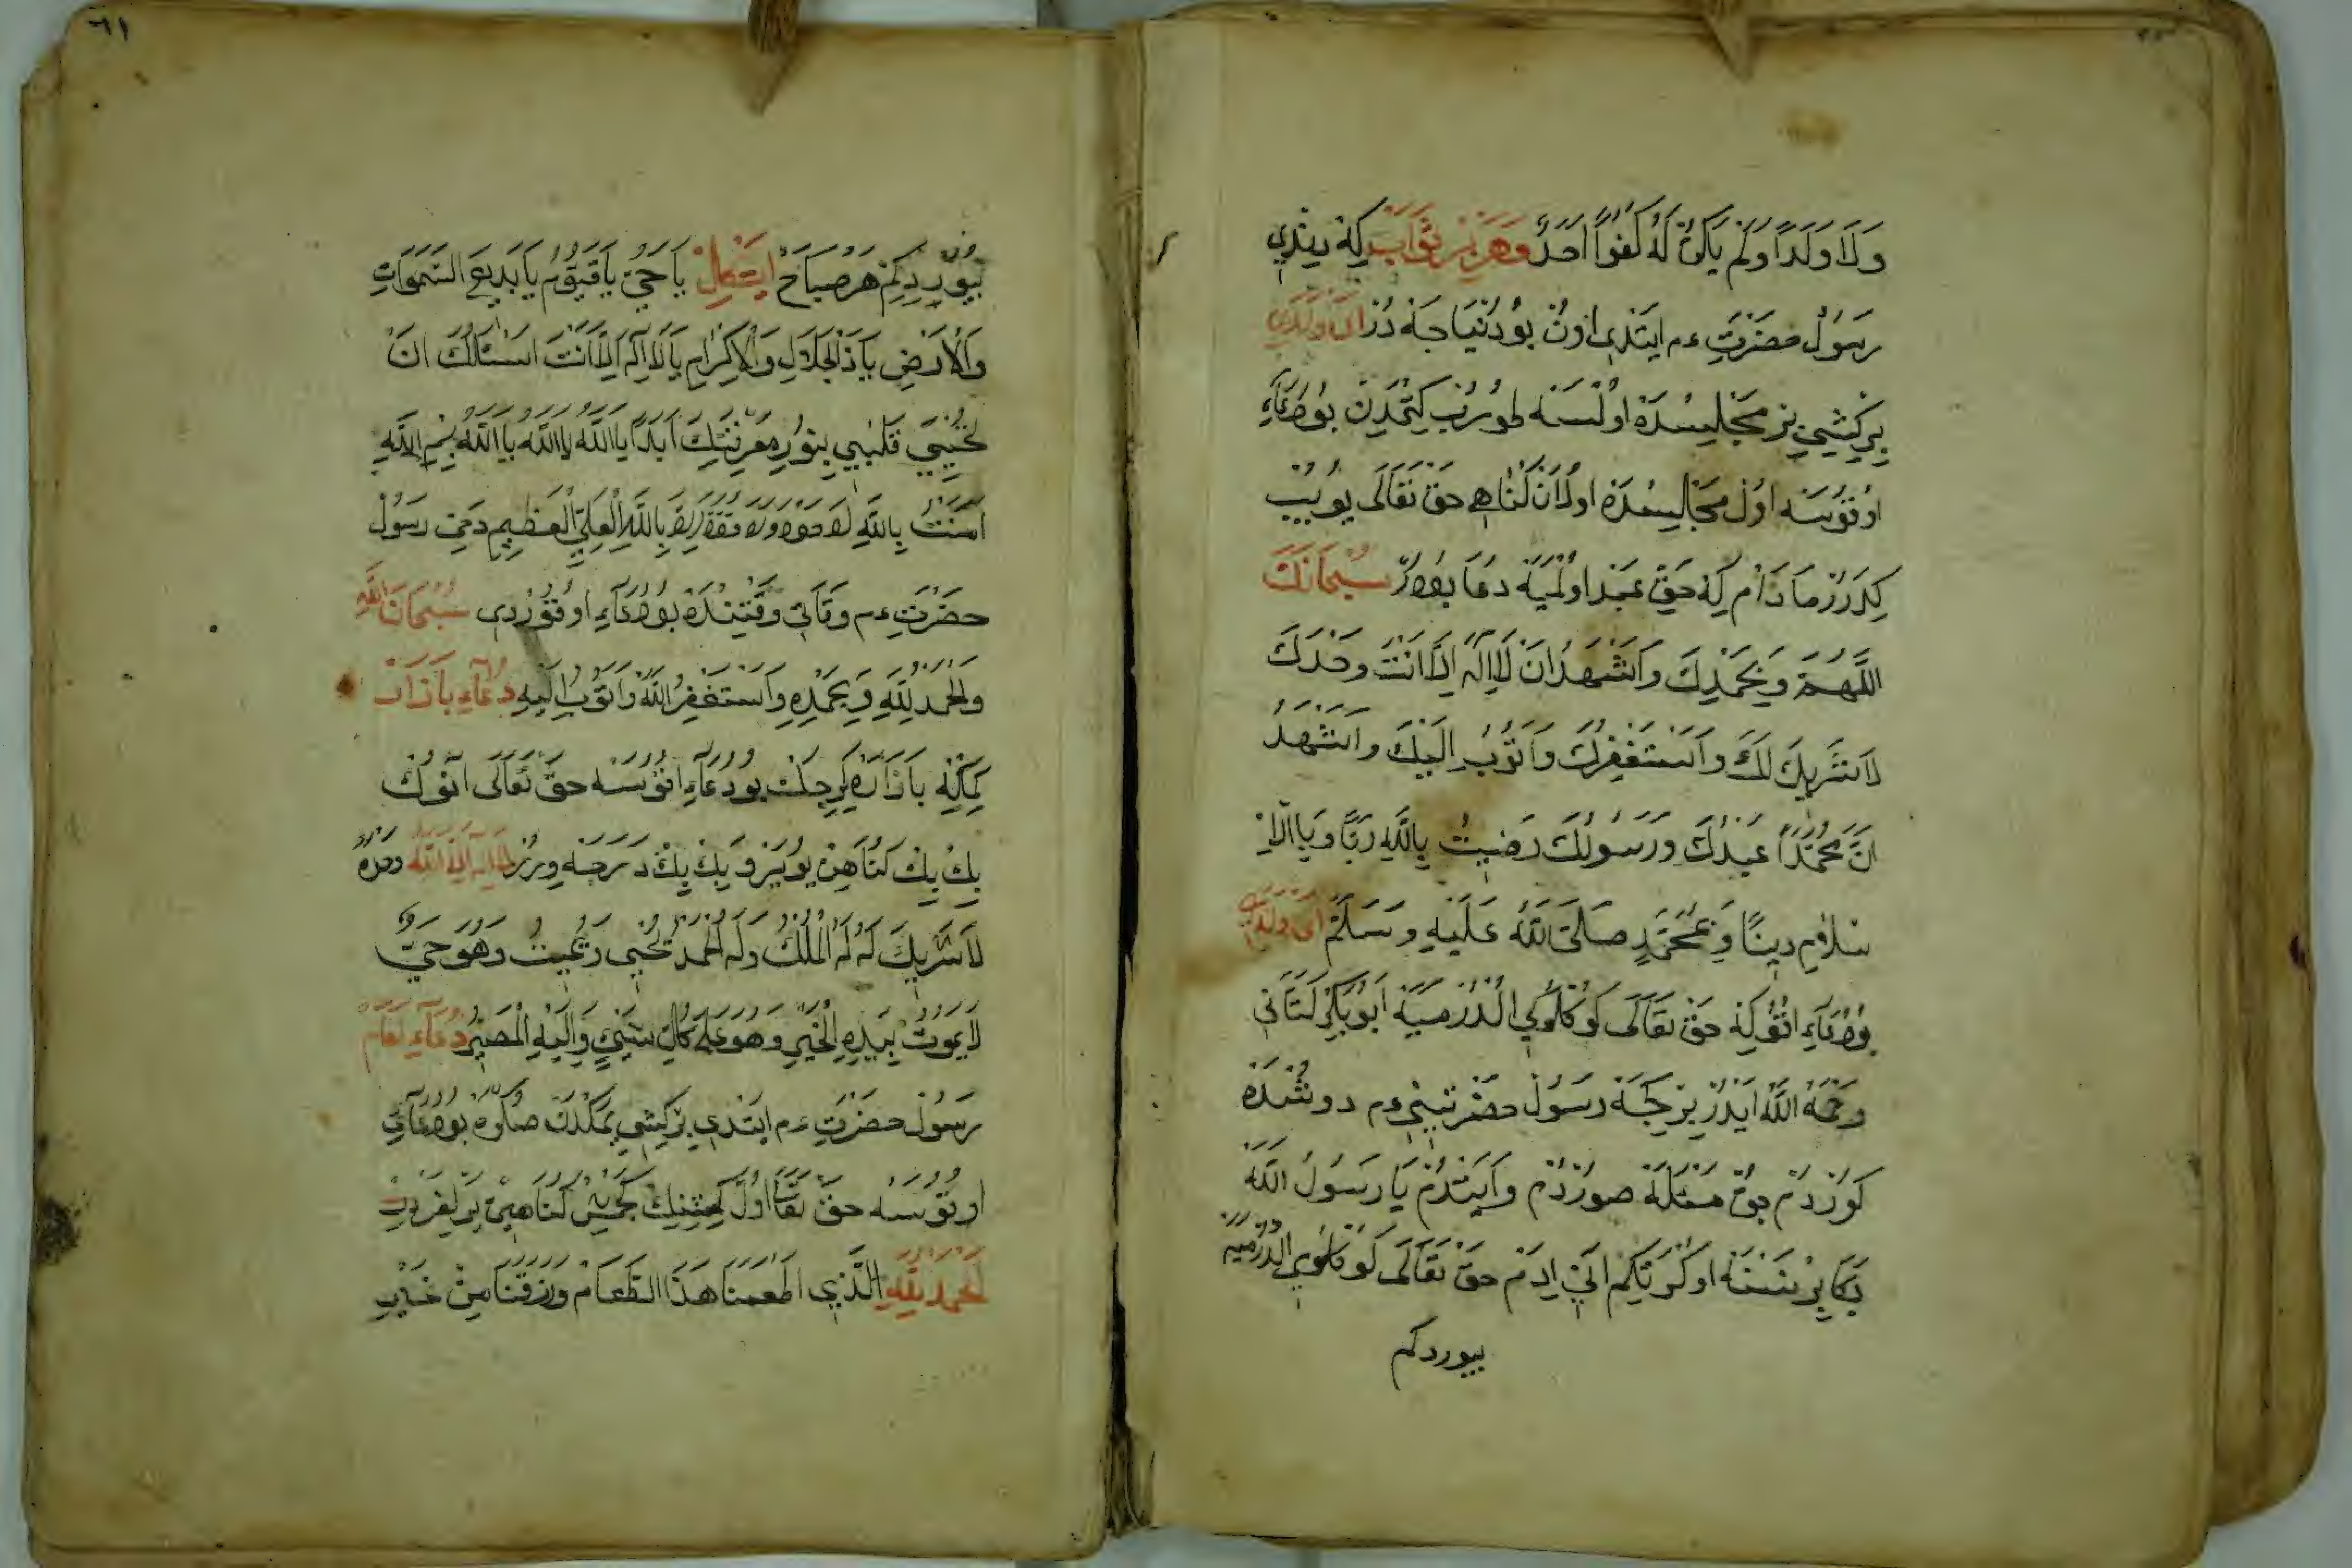 وَلَا وَلَدًا وَلَمْ يَكُنْ لَهُ كُفُوًا اَحَدٌ وهر بر ثواب كه يتدي
رسول حضرت عم ايتدى اون بو دنيا جه در اى ولدى
بر كشي بر مجلسده اولسه طورب كتمدن بو دعاء
اوقوسه اول مجالسده اولان كناهي حق تعالى يويب
كدرر مادام كه حق عبد اولميه دعا بودر سُبْحَانَكَ
اللَّهُمَّ وَبِحَمْدِكَ وَاَشْهَدُ اَنْ لَا اِلَهَ اِلَّا اَنْتَ وَحْدَكَ
لَا شَرِيكَ لَكَ وَاَسْتَغْفِرُكَ وَاَتُوبُ اِلَيْكَ وَاَشْهَدُ
اَنَّ مُحَمَّدًا عَبْدُكَ وَرَسُولُكَ رَضِيتُ بِاللَّهِ رَبًّا وَبِالاِ
سْلَامِ دِينًا وَبِمُحَمَّدٍ صَلَّى اللَّهُ عَلَيْهِ وَسَلَّمَ اى ولدى
بو دعاء اقوكه حق تعالى كوكلوكي الدرميه ابو بكر كتاني
رحمة الله ايدر بر كجه رسول حضرتيني عم دوشده
كوردم بو مسئله صوردم وايتدم يا رسول الله
بكا بر نسنه اوكرتكم اني ايدم حق تعالى كوكلومي الدرميه
بيوردكم
٦١
بيوردكم هر صباح ايتكل يَا حَيُّ يَا قَيُّومُ يَا بَدِيعَ السَّمَوَاتِ
وَالْاَرْضِ يَا ذَا الْجَلَالِ وَالْاِكْرَامِ يَا لَا اِلَهَ اِلَّا اَنْتَ اَسْئَلُكَ اَنْ
تُحْيِيَ قَلْبِي بِنُورِ مَعْرِفَتِكَ اَبَدًا يَا اَللَّهُ يَا اَللَّهُ يَا اَللَّهُ بِسْمِ اللَّهِ
اَمَنْتُ بِاللَّهِ لَا حَوْلَ وَلَا قُوَّةَ اِلَّا بِاللَّهِ الْعَلِيِّ الْعَظِيمِ دخي رسول
حضرت عم وفاتي وقتنده بو دعاء اوقوردي سُبْحَانَ اللَّهِ
وَالْحَمْدُ لِلَّهِ وَبِحَمْدِهِ وَاَسْتَغْفِرُ اللَّهَ وَاَتُوبُ اِلَيْهِ دعاء بازار
كمكه بازاره كرجك بو دعاء اقوسه حق تعالى انوك
بك بك كناهن يويز و بك بك درجه ويرر لا اله الا الله وحده
لَا شَرِيكَ لَهُ لَهُ الْمُلْكُ وَلَهُ الْحَمْدُ يُحْيِي وَيُمِيتُ وَهُوَ حَيٌّ
لَا يَمُوتُ بِيَدِهِ الْخَيْرُ وَهُوَ عَلَى كُلِّ شَيْءٍ وَاِلَيْهِ الْمَصِيرُ دعاء طعام
رسول حضرت عم ايتدى بر كشي يمكدن صكره بو دعاي
اوقوسه حق تعا اول كشنك كجمش كناهين يرلغر
اَلْحَمْدُ لِلَّهِ الَّذِي اَطْعَمَنَا هَذَا الطَّعَامْ وَرَزَقَنَا مِنْ غَيْرِ